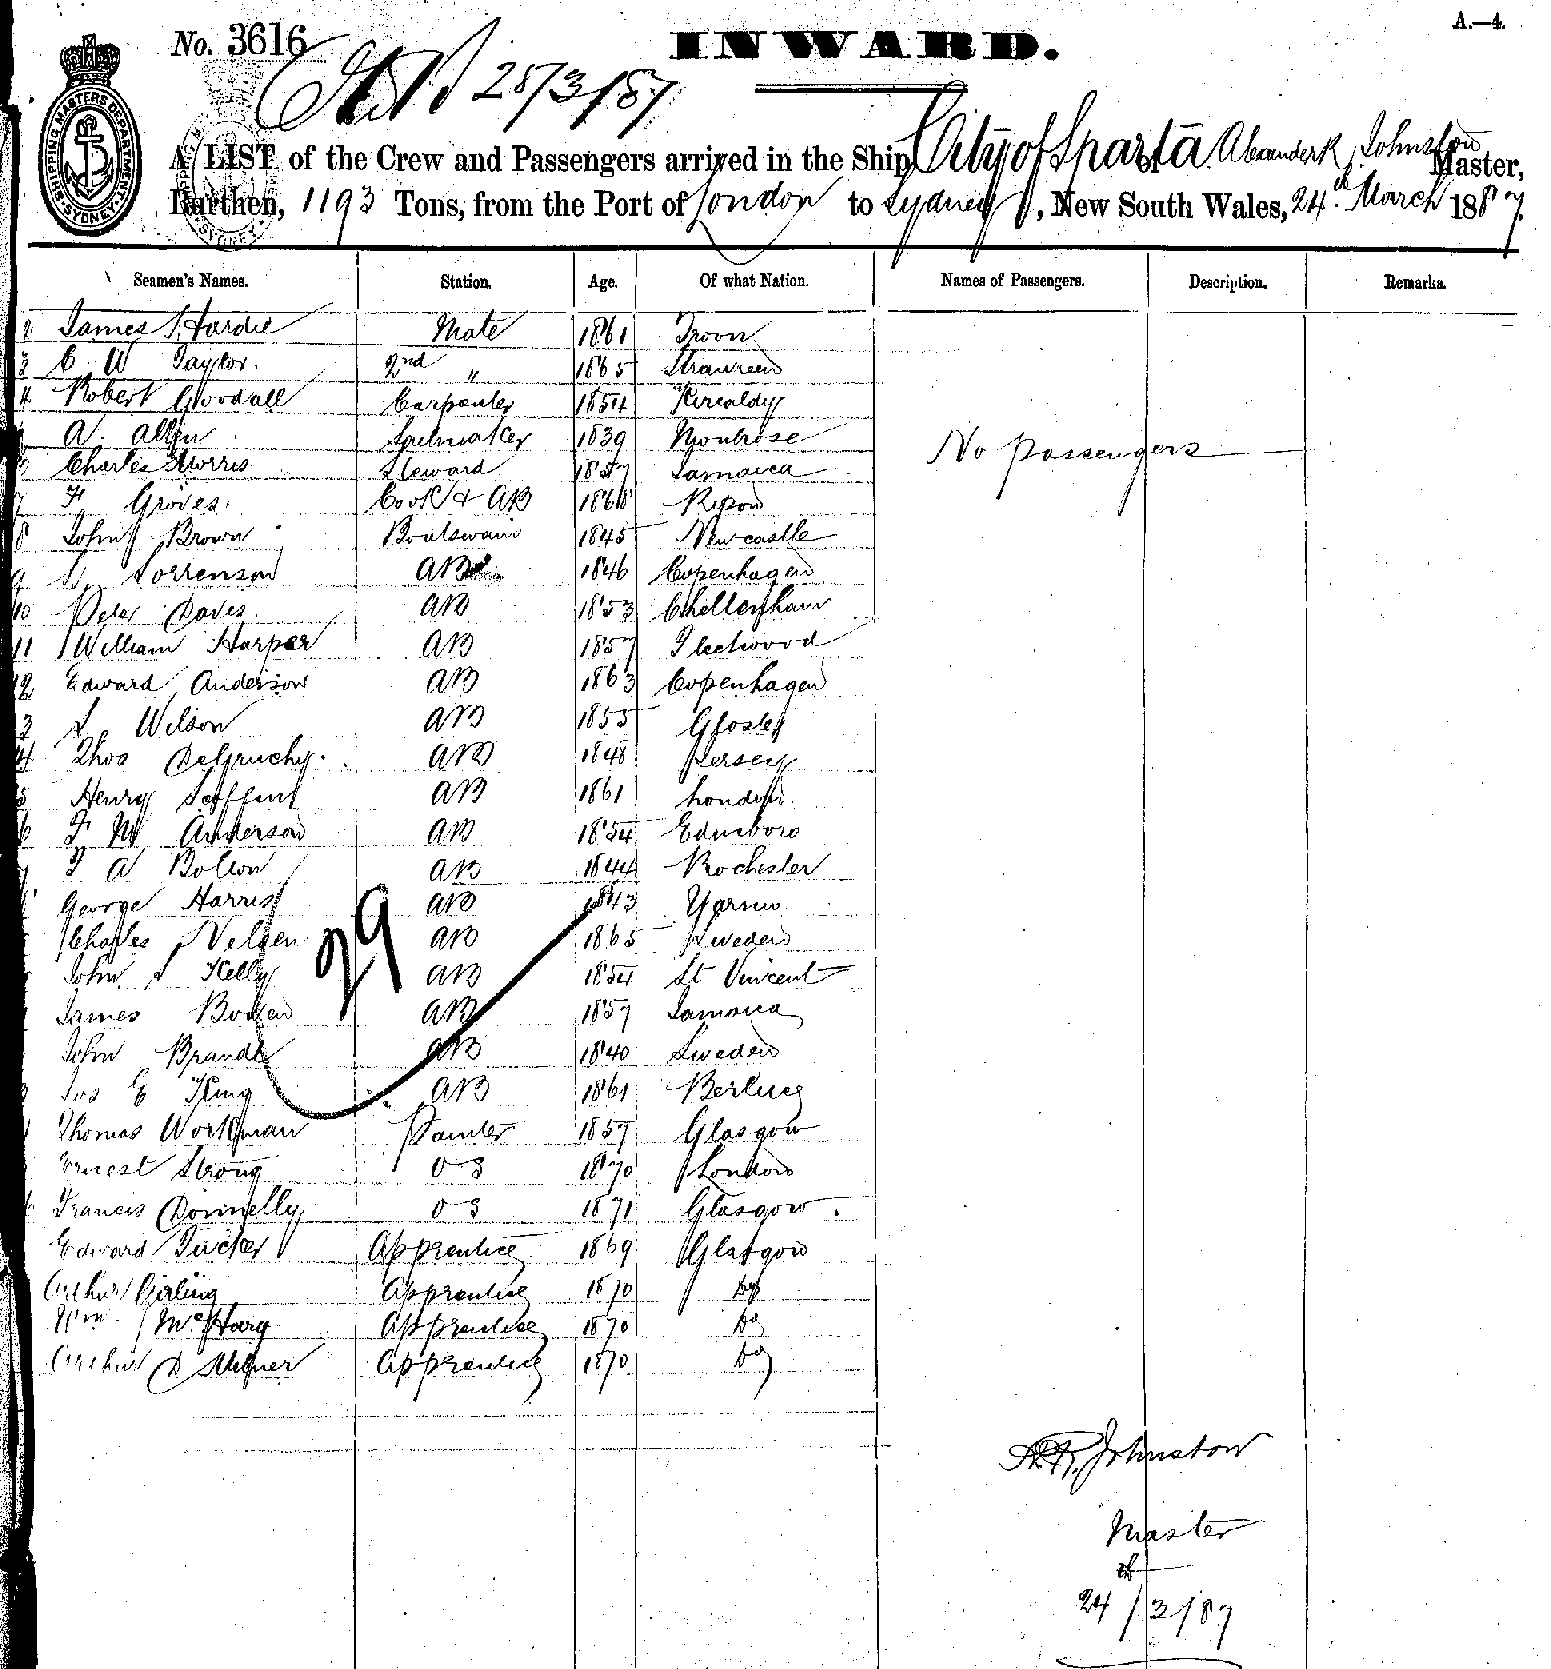 A.—4.
No. 3616
INWARD.
25/3/87
SHIPPING MASTERS DEPARTMENT SYDNEY
A LIST of the Crew and Passengers arrived in the Ship City of Sparta of Alexander K Johnston Master,
Burthen, 1193 Tons, from the Port of London to Sydney, New South Wales, 24th March 1887
Seamen's Names. Station. Age. Of what Nation. Names of Passengers. Description. Remarks.
2 James Hardie Mate 1861 Troon
3 C W Taylor. 2nd " 1865
4 Robert Goodall Carpenter 1854 Kircaldy
A. Allan Sailmaker 1839 Montrose
Charles Morris Steward 1857 Jamaica
No passengers
7 F Groves. Cook & AB 1868 Ripon
8 John Brown Boatswain 1845 Newcastle
9 Sorrenson AB 1846 Copenhagen
10 Peter Daves AB 1853 Cheltenham
11 William Harper AB 1857 Fleetwood
12 Edward Anderson AB 1863 Copenhagen
3 Wilson AB 1855
4 Thos DeGruchy. AB 1848 Jersey
5 Henry AB 1861 London
6 F W Anderson AB 1854
F A Bolton AB 1844 Rochester
George Harris AB 1843
Charles Nelsen AB 1865 Sweden
John Kelly AB 1854 St Vincent
James Bowen AB 1857 Jamaica
John Brandt AB 1840 Sweden
Jos E King AB 1861
29
Thomas Workman Painter 1857 Glasgow
Ernest Strong OS 1870 London
Francis Donnelly OS 1871 Glasgow.
Edward Tucker Apprentice 1869 Glasgow
Arthur Girling Apprentice 1870 Do
Wm McHarg Apprentice 1870 Do
Arthur D Milner Apprentice 1870 Do
A.K. Johnston
Master
24/3/87